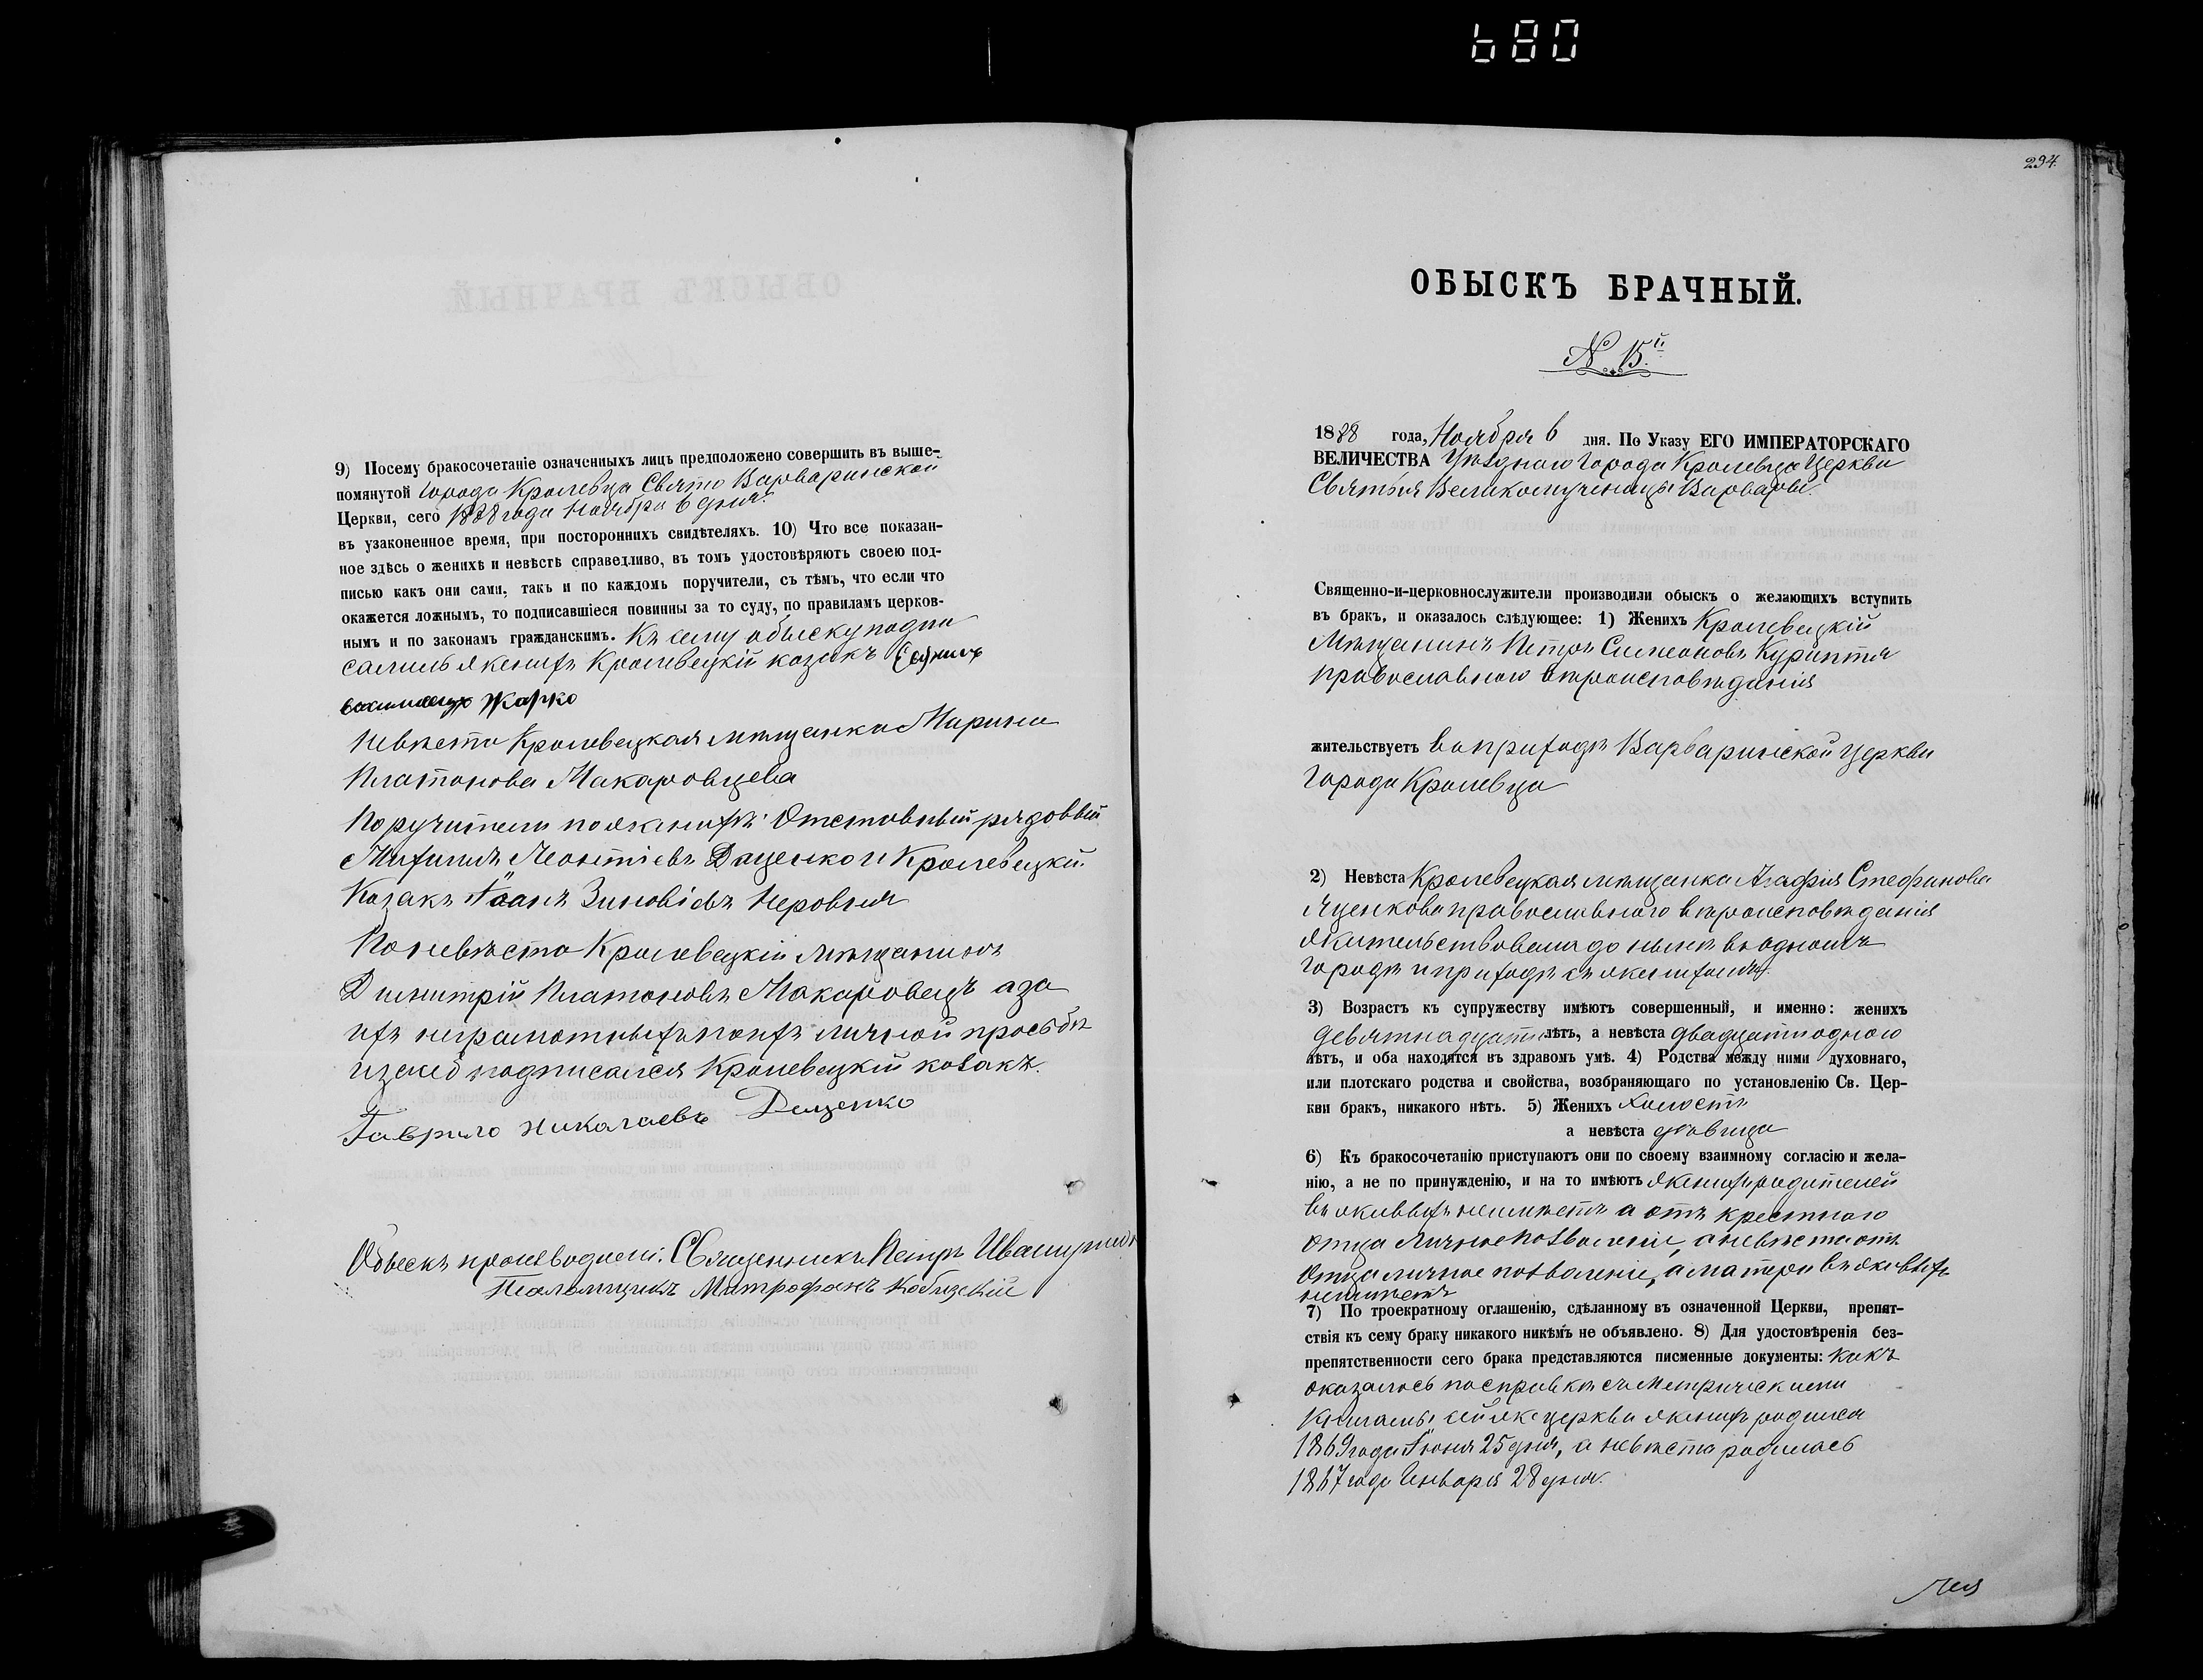 680
9) Посему бракосочетаніе означенныхъ лицъ предположено совершить въ выше-
помянутой города Кролевца Свято Варваринской
Церкви, сего 1888 года Ноября 6 дня.
въ узаконенное время, при постороннихъ свидѣтеляхъ. 10) Что все показан-
ное здѣсь о женихѣ и невѣстѣ справедливо, въ томъ удостовѣряютъ своею под-
писью какъ они сами, такъ и по каждомъ поручители, съ тѣмъ, что если что
окажется ложнымъ, то подписавшіеся повинны за то суду, по правиламъ церков-
нымъ и по законамъ гражданскимъ. Къ сему обыску подпи
сались женихъ Кролевецкій козакъ
Жарко
Невѣста Кролевецкая мѣщанка Марина
Платонова Макаровцева
Поручители по женихѣ: Отставный рядовый
Михаилъ Леонтіевъ Даценко и Кролевецкій
Козакъ Іоанъ Зиновіевъ Неровня
По невѣстѣ Кролевецкій мѣщанинъ
Димитрій Платоновъ Макаровецъ а за
ихъ неграмотныхъ по ихъ личной просьбѣ
и за себ подписался Кролевецкій козакъ.
Гаврило Николаевъ Даценко
Обыскъ производили: Священникъ Петръ
Псаломщикъ Митрофанъ Кобизскій
294.
ОБЫСКЪ БРАЧНЫЙ.
№ 15.й
1888 года, Ноября 6 дня. По Указу ЕГО ИМПЕРАТОРСКАГО
ВЕЛИЧЕСТВА Уѣзднаго города Кролевца Церкви
Святыя Великомученицы Варвары.
Священно-и-церковнослужители производили обыскъ о желающихъ вступить
въ бракъ, и оказалось слѣдующее: 1) Женихъ Кролевецкій
Мѣщанинъ Петръ Симеоновъ Курипта
православного вѣроисповѣданія
жительствуетъ въ приходѣ Варваринской церкви
города Кролевца
2) Невѣста Кролевецкая мѣщанка Агафія Стефанова
Яценкова православного вѣроисповѣданія
жительствовала до нынѣ въ одномъ
городѣ и приходѣ съ женихомъ.
3) Возрастъ къ супружеству имѣютъ совершенный, и именно: женихъ
девятнадцати лѣтъ, а невѣста двадцати одного
лѣтъ, и оба находятся въ здравомъ умѣ. 4) Родства между ними духовнаго,
или плотскаго родства и свойства, возбраняющаго по установленію Св. Цер-
кви бракъ, никакого нѣтъ. 5) Женихъ холостъ
а невѣста дѣвица
6) Къ бракосочетанію приступаютъ они по своему взаимному согласію и жела-
нію, а не по принужденію, и на то имѣютъ женихъ родителей
въ живыхъ неимѣетъ а отъ крестного
отца личное позволеніе, а невѣста отъ
Отца личное позволеніе, а матери въ живыхъ
неимѣетъ
7) По троекратному оглашенію, сдѣланному въ означенной Церкви, препят-
ствія къ сему браку никакого никѣмъ не объявлено. 8) Для удостовѣренія без-
препятственности сего брака представляются писменные документы: какъ
оказалось по справкѣ съ Метрическими
Книгамы сей же церкви женихъ родился
1869 года Іюня 25 дня, а невѣста родилась
1867 года Января 28 дня.